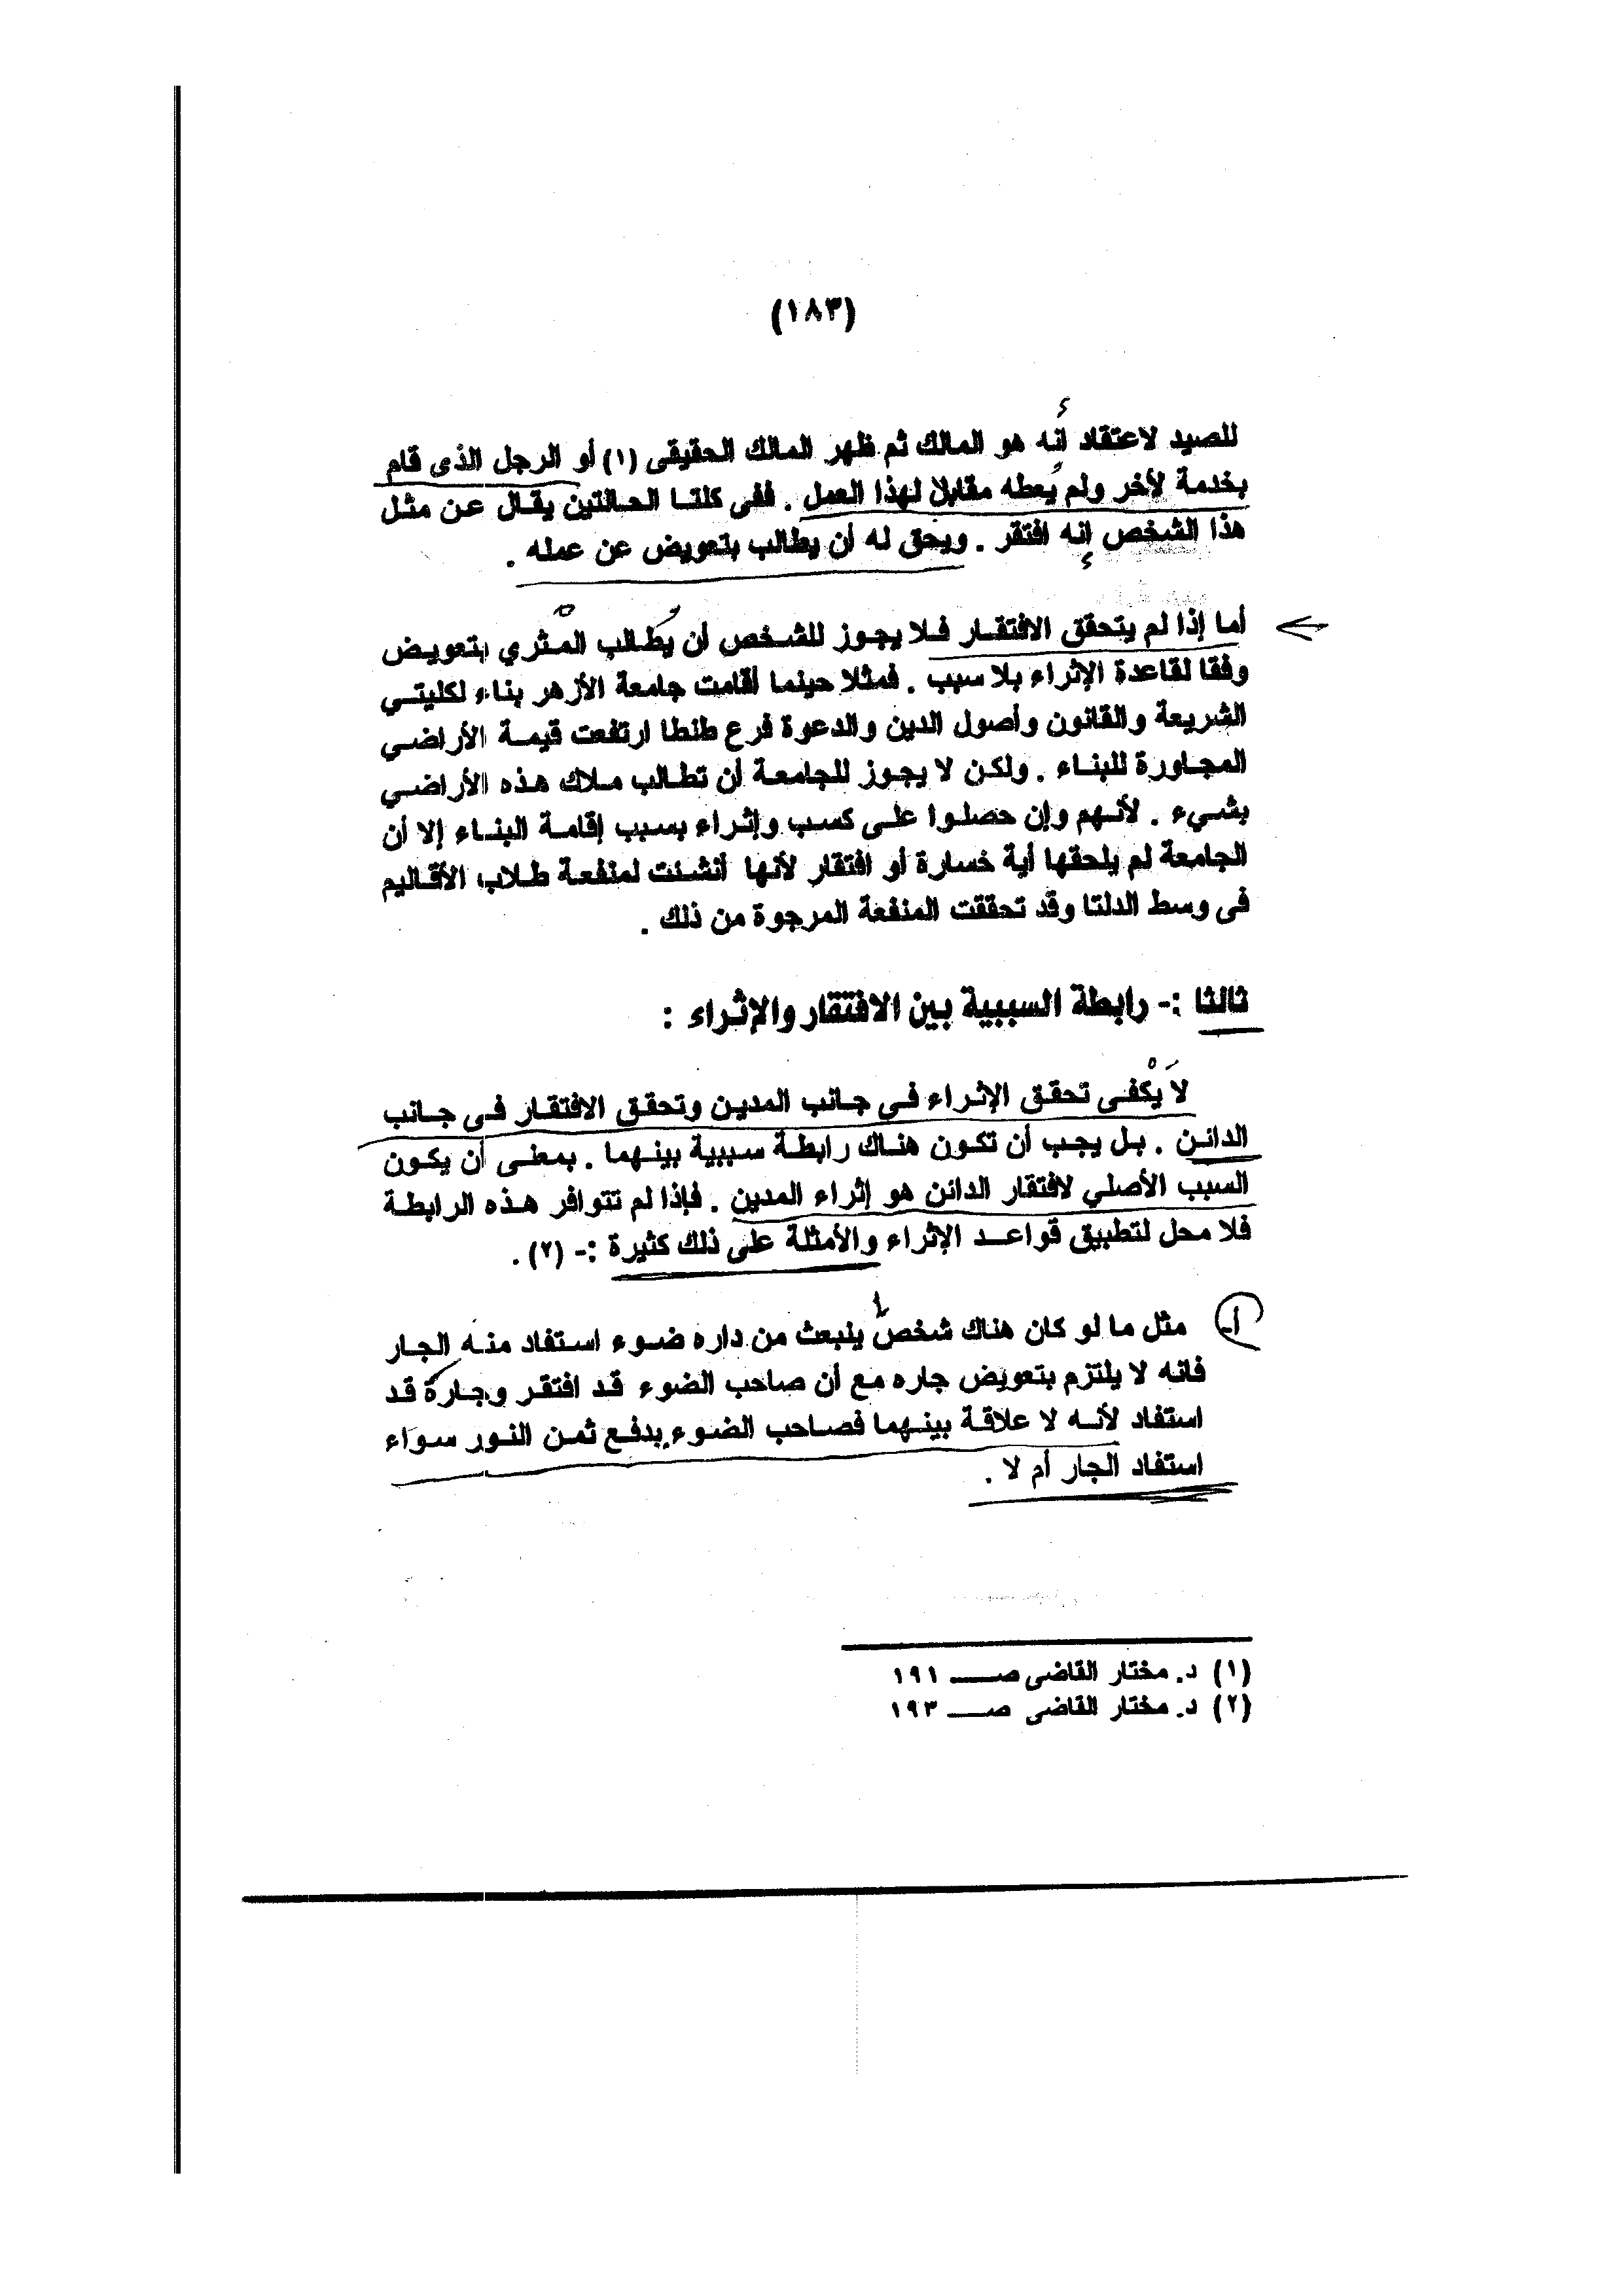 (١٨٣)
للصيد لاعتقاد أنه هو المالك ثم ظهر المالك الحقيقى (١) أو الرجل الذى قام
بخدمة لأخر ولم يعطه مقابلا لهذا العمل . ففى كلتـا الحـالتين يقـال عـن مثـل
هذا الشخص إنه افتقر . ويحق له أن يطالب بتعويض عن عمله .
أما إذا لم يتحقق الافتقـار فـلا يجـوز للشـخص أن يُطـالب المْثري بتعويـض
وفقا لقاعدة الإثراء بلا سبب . فمثلا حينما أقامت جامعة الأزهر بناء لكليتـي
الشريعة والقانون وأصول الدين والدعوة فرع طنطا ارتفعت قيمـة الأراضـي
المجـاورة للبنـاء . ولكـن لا يجـوز للجامعـة أن تطـالب مـلاك هـذه الأراضـي
بشـيء . لأنـهم وإن حصلـوا علـى كسـب وإثـراء بسـبب إقامـة البنـاء إلا أن
الجامعة لم يلحقها أية خسارة أو افتقار لأنها أنشـئت لمنفعـة طـلاب الأقـاليم
فى وسط الدلتا وقد تحققت المنفعة المرجوة من ذلك .
ثالثا :- رابطة السببية بين الافتقار والإثراء :
لاَ يْكفـى تحقـق الإثـراء فـى جـانب المديـن وتحقـق الافتقـار فـى جـانب
الدائـن . بـل يجـب أن تكـون هنـاك رابطـة سـببية بينـهما . بمعنـى أن يكـون
السبب الأصلي لافتقار الدائن هو إثراء المدين . فإذا لم تتوافر هـذه الرابطـة
فلا محل لتطبيق قواعـد الإثراء والأمثلة على ذلك كثيرة :- (٢) .
أـ مثل ما لو كان هناك شخص ينبعث من داره ضـوء اسـتفاد منـه الجـار
فانه لا يلتزم بتعويض جاره مـع أن صاحب الضوء قـد افتقـر وجـارة قـد
استفاد لأنـه لا علاقـة بينـهما فصـاحب الضـوء يدفـع ثمـن النـور سـواء
استفاد الجار أم لا .
(١) د. مختار القاضى صـــ ١٩١
(٢) د. مختار القاضى صـــ ١٩٣